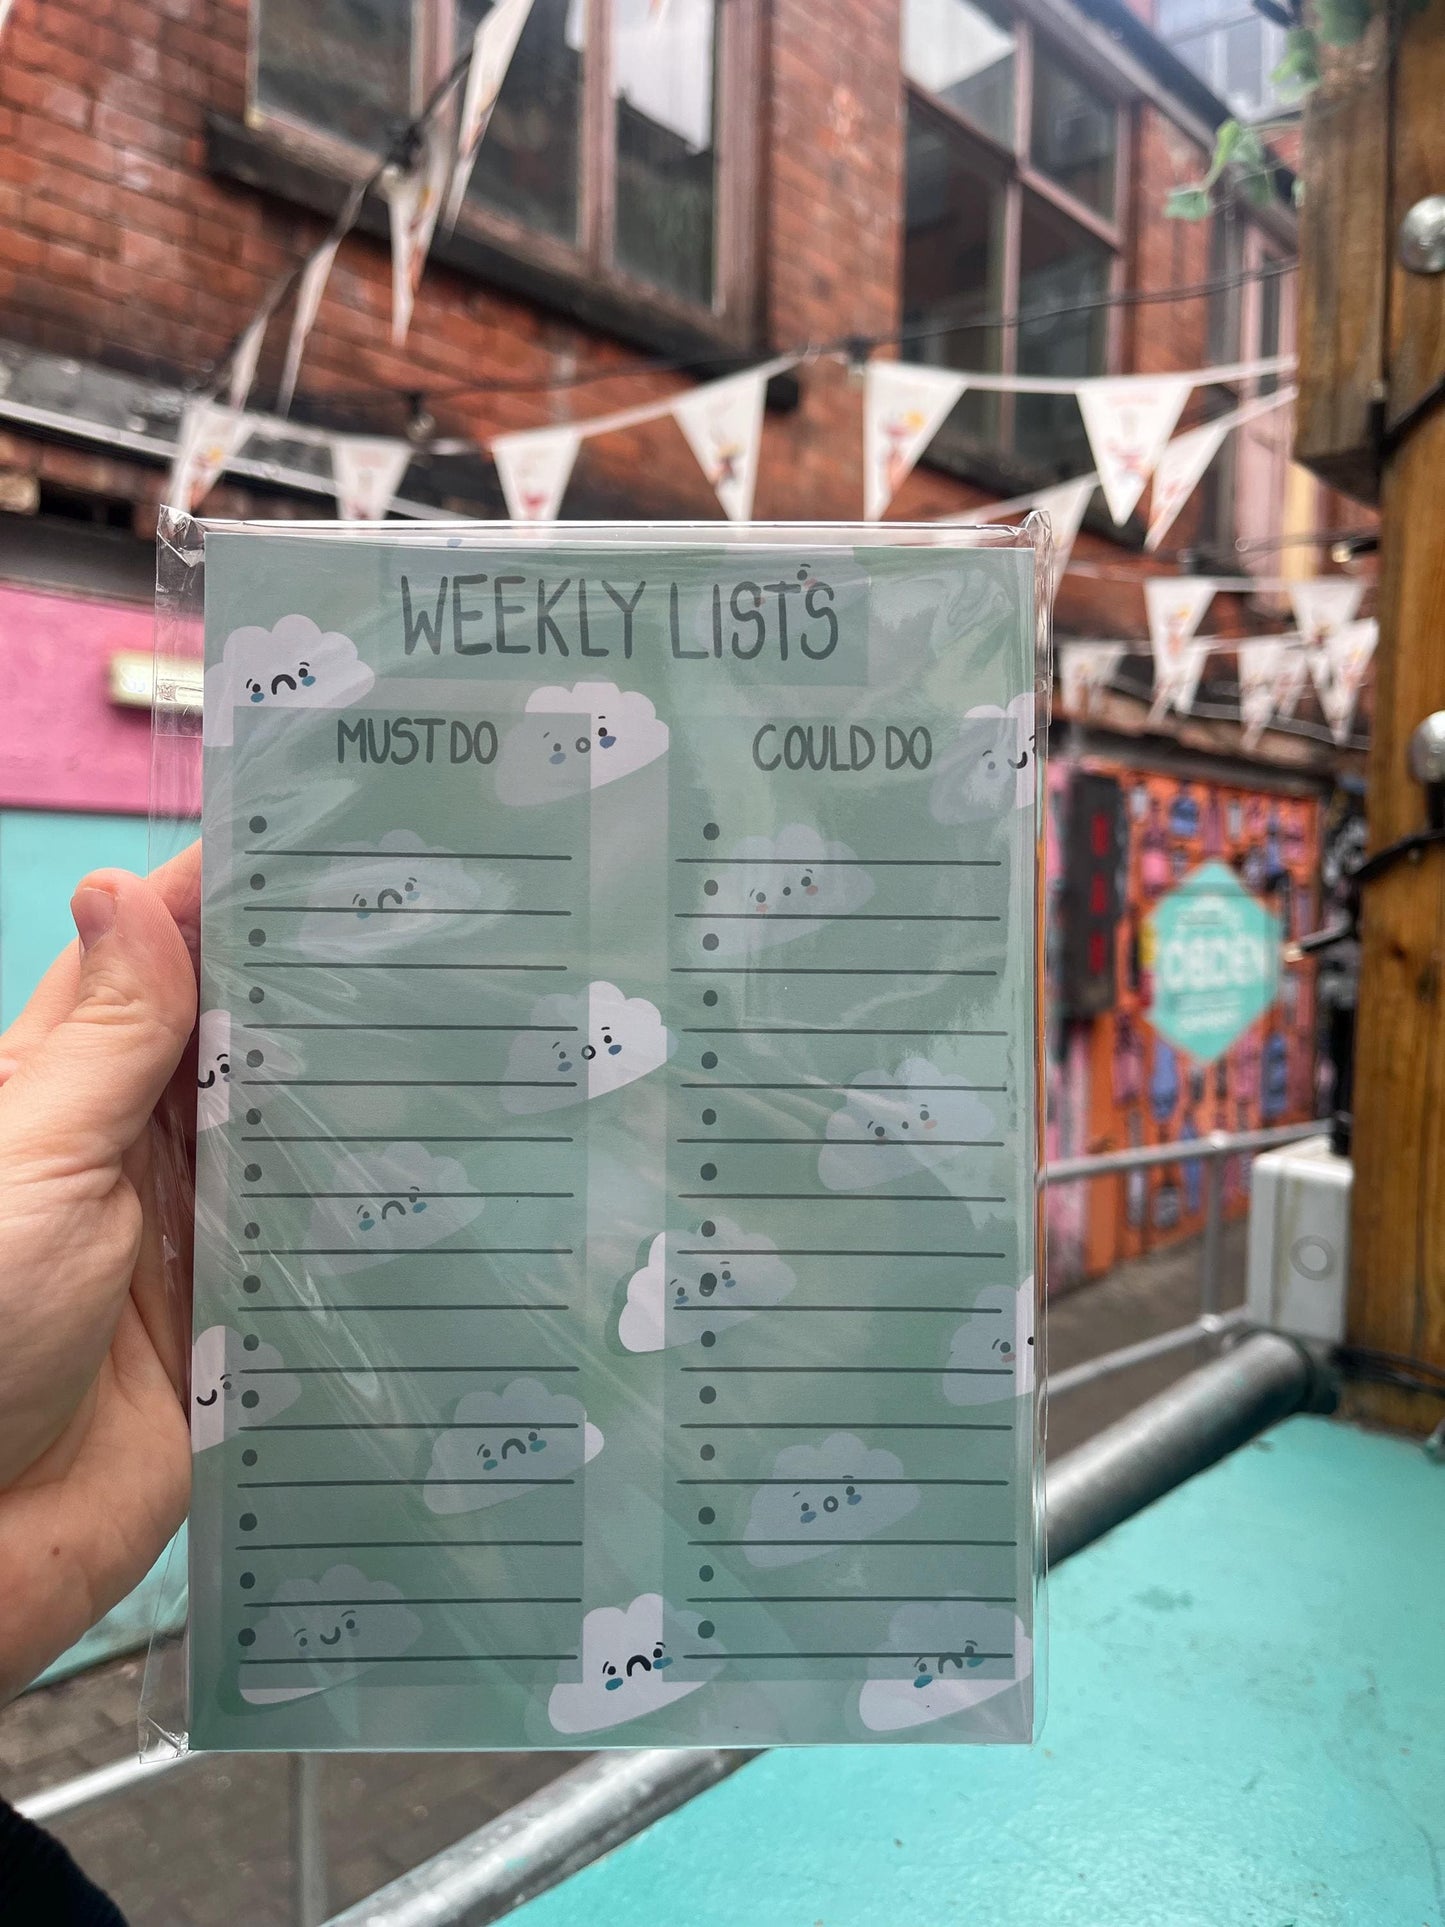 WEEKLY LISTS
MUST DO
COULD DO